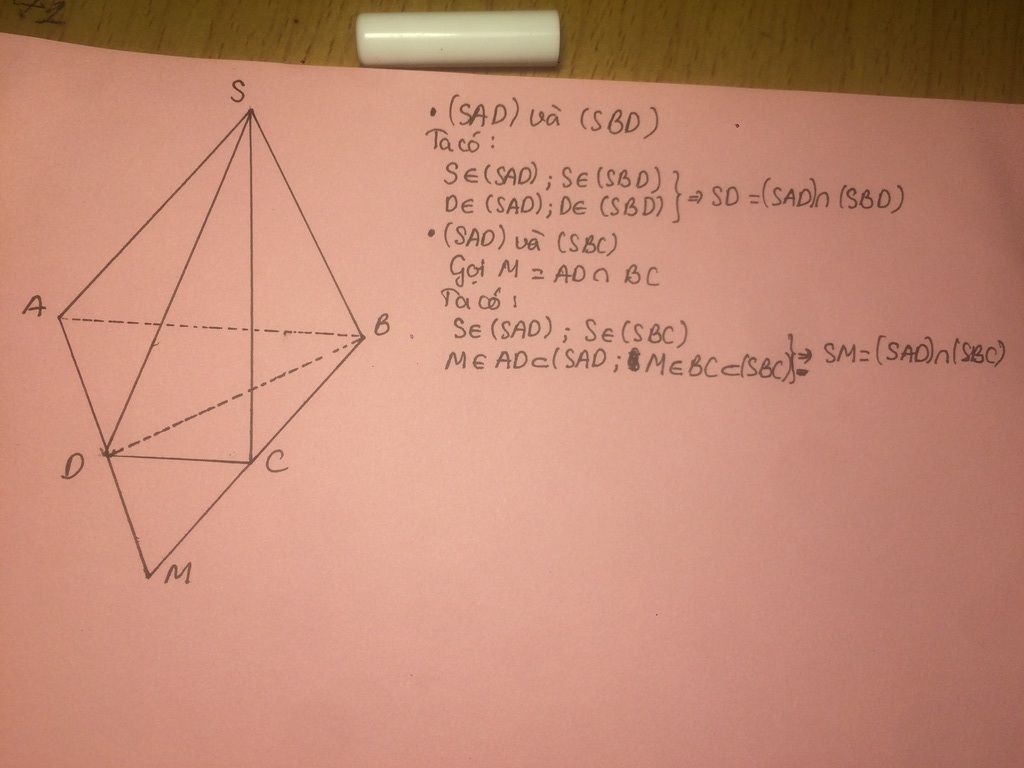 S
A
B
D
C
M
• (SAD) và (SBD)
Ta có :
S∈(SAD) ; S∈(SBD)
D∈ (SAD); D∈ (SBD) } ⇒ SD = (SAD)∩ (SBD)
• (SAD) và (SBC)
Gọi M = AD ∩ BC
Ta có :
S∈(SAD) ; S∈(SBC)
M∈ AD⊂(SAD ; M∈BC⊂(SBC) } ⇒ SM = (SAD)∩(SBC)